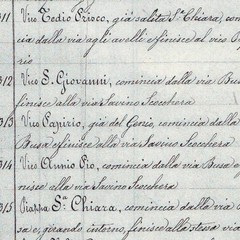 311 Vico Tedio Prisco, già salita Sª Chiara, com
cia dalla via agli avelli e finisce al vico B
rio
312 Vico S. Giovanni, comincia dalla via Bu
finisce alla via Savino Scocchera
313 Vico Papirio, già del Gozio, comincia dalla
Busa e finisce alla via Savino Scocchera
314 Vico Annio Pio, comincia dalla via Busa e
nisce alla via Savino Scocchera
315 Piazza Sª Chiara, comincia dalla via B
sa e, girando intorno, finisce alla stessa via